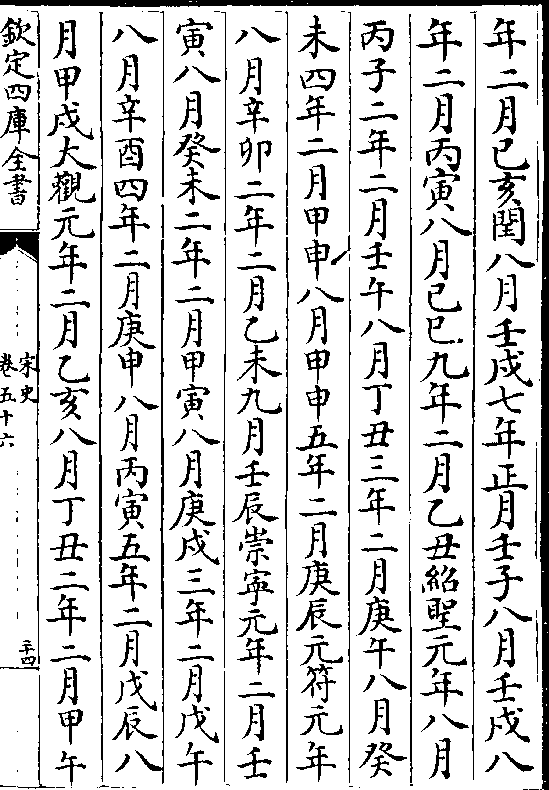 年二月己亥閏八月壬戌七年正月壬子八月壬戌八
年二月丙寅八月己巳九年二月乙丑紹聖元年八月
丙子二年二月壬午八月丁丑三年二月庚午八月癸
未四年二月甲申八月甲申五年二月庚辰元符元年
八月辛卯二年二月乙未九月壬辰崇寧元年二月壬
寅八月癸未二年二月甲寅八月庚戌三年二月戊午
八月辛酉四年二月庚申八月丙寅五年二月戊辰八
月甲戌大觀元年二月乙亥八月丁丑二年二月甲午
欽定四庫全書
宋史
卷五十六
二十四